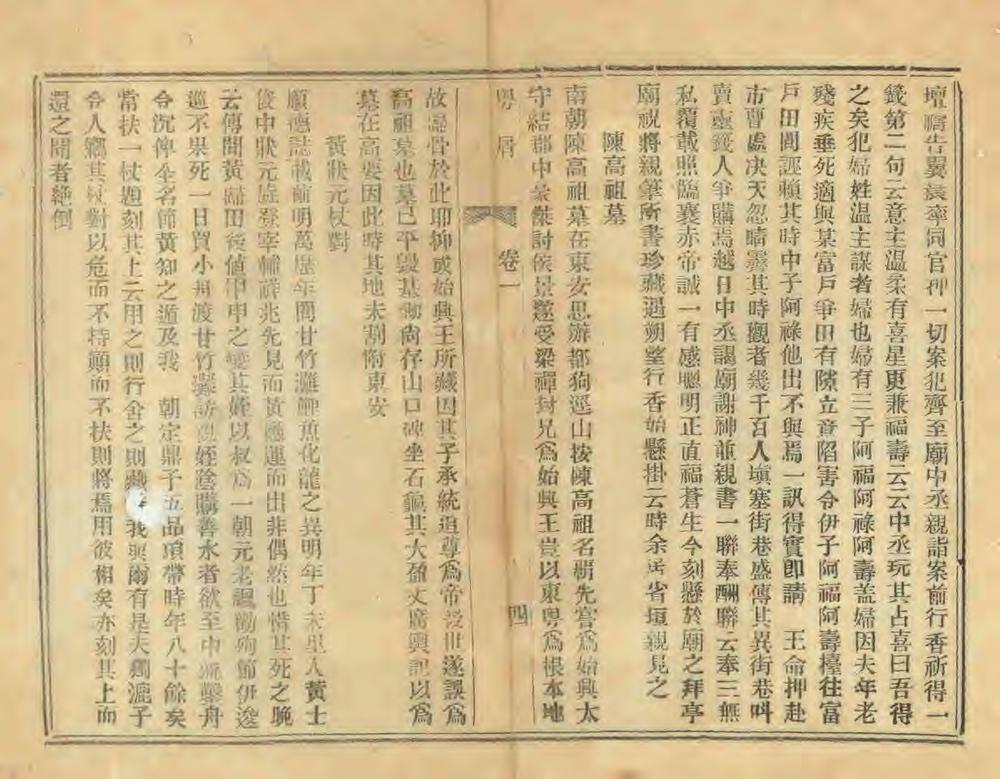 壇禱告翼晨率同官押一切案犯齊至廟中丞親詣案前行香祈得一
籤第二句云意主溫柔有喜星更兼福壽云云中丞玩其占喜曰吾得
之矣犯婦姓溫主謀者婦也婦有三子阿福阿祿阿壽盖婦因夫年老
殘疾垂死適與某富戶爭田有隙立意陷害令伊子阿福阿壽擡往富
戶田間誣賴其時中子阿祿他出不與焉一訊得實即請 王命押赴
市曹處决天忽晴霽其時觀者幾千百人塡塞街巷盛傳其異街巷呌
賣靈籤人爭購焉越日中丞謁廟謝神並親書一聯奉酬聯云奉三無
私覆載照臨襄赤帝誠一有感聰明正直福蒼生今刻懸於廟之拜亭
廟祝將親筆所書珍藏遇朔望行香始懸掛云時余居省垣親見之
陳高祖墓
南朝陳高祖墓在東安思辦都狗逕山按陳高祖名霸先嘗爲始興太
守結郡中豪傑討侯景遂受梁禪封兄爲始興王豈以東粤爲根本地
粤屑 卷一 四
故歸骨於此耶抑或始興王所藏因其子承統追尊爲帝後世遂誤爲
高祖墓也墓已平毀基址尙存山口碑坐石龜其大盈丈廣輿記以爲
墓在高要因此時其地未割附東安
黃狀元杖對
順德誌載前明萬歷年間甘竹灘鯉魚化龍之異明年丁未里人黃士
俊中狀元旋登宰輔祥兆先見而黃應運而出非偶然也惜其死之晚
云傳聞黃歸田後値甲申之變其姪以叔爲一朝元老諷勸殉節伊逡
巡不果死一日買小舟渡甘竹灘訪親姪陰購善水者欲至中流鑿舟
令沉俾全名節黃知之遁及我 朝定鼎予五品頂帶時年八十餘矣
常扶一杖題刻其上云用之則行舍之則藏 我與爾有是夫獨漉子
令人鄉其杖對以危而不持顚而不扶則將焉用彼相矣亦刻其上而
還之聞者絶倒